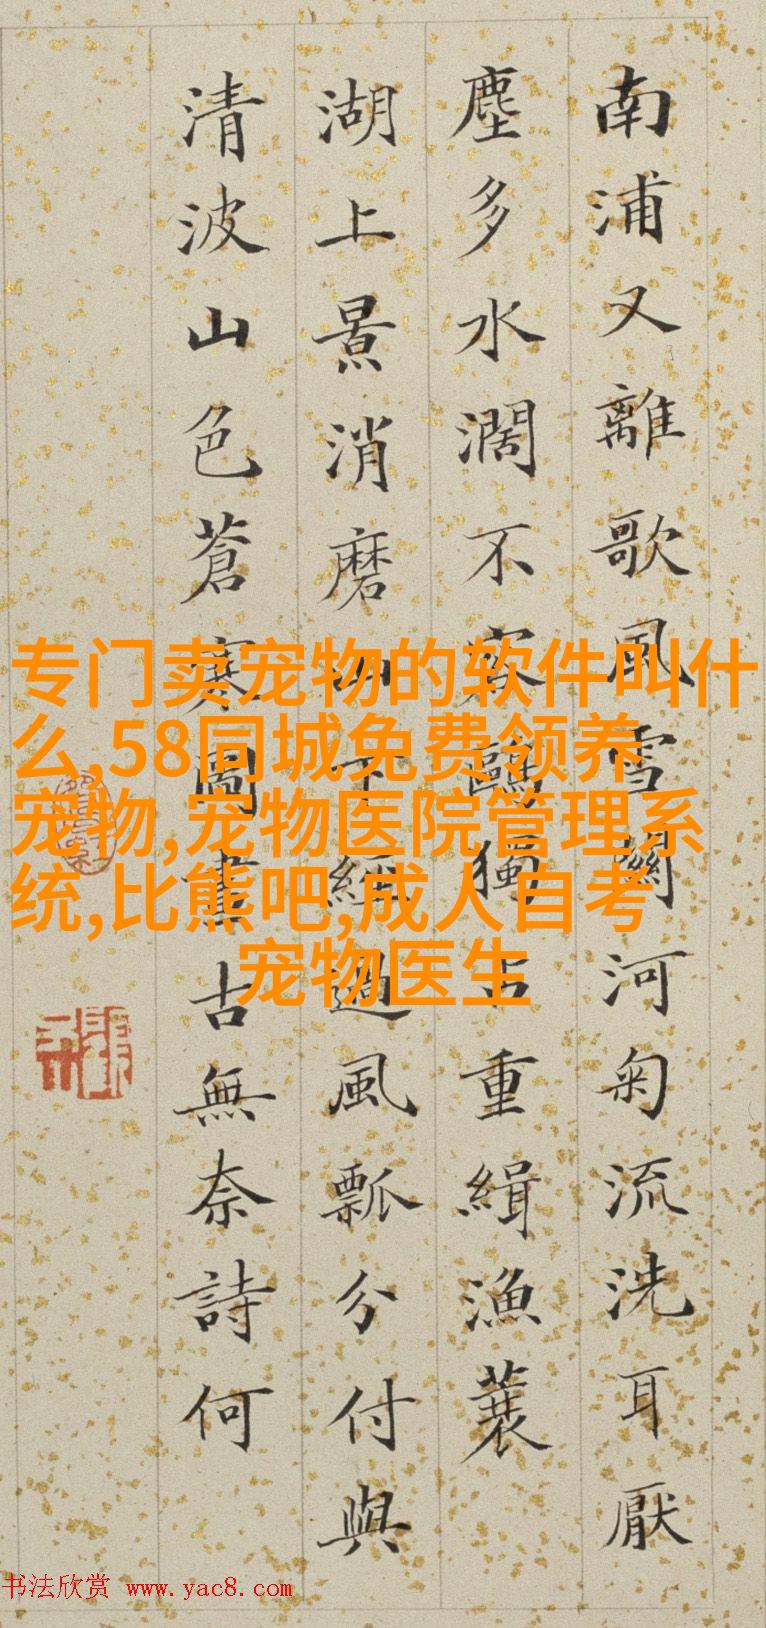 南浦又離歌風雪關河匊流洗耳厭
塵多水濶不容鷗獨占重緝漁蓑
湖上景消磨山下經過風瓢分付與
清波山色蒼寒圖畫古無奈詩何
专门卖宠物的软件叫什
么,58同城免费领养
宠物,宠物医院管理系
统,比熊吧,成人自考
宠物医生
书法欣赏 www.yac8.com